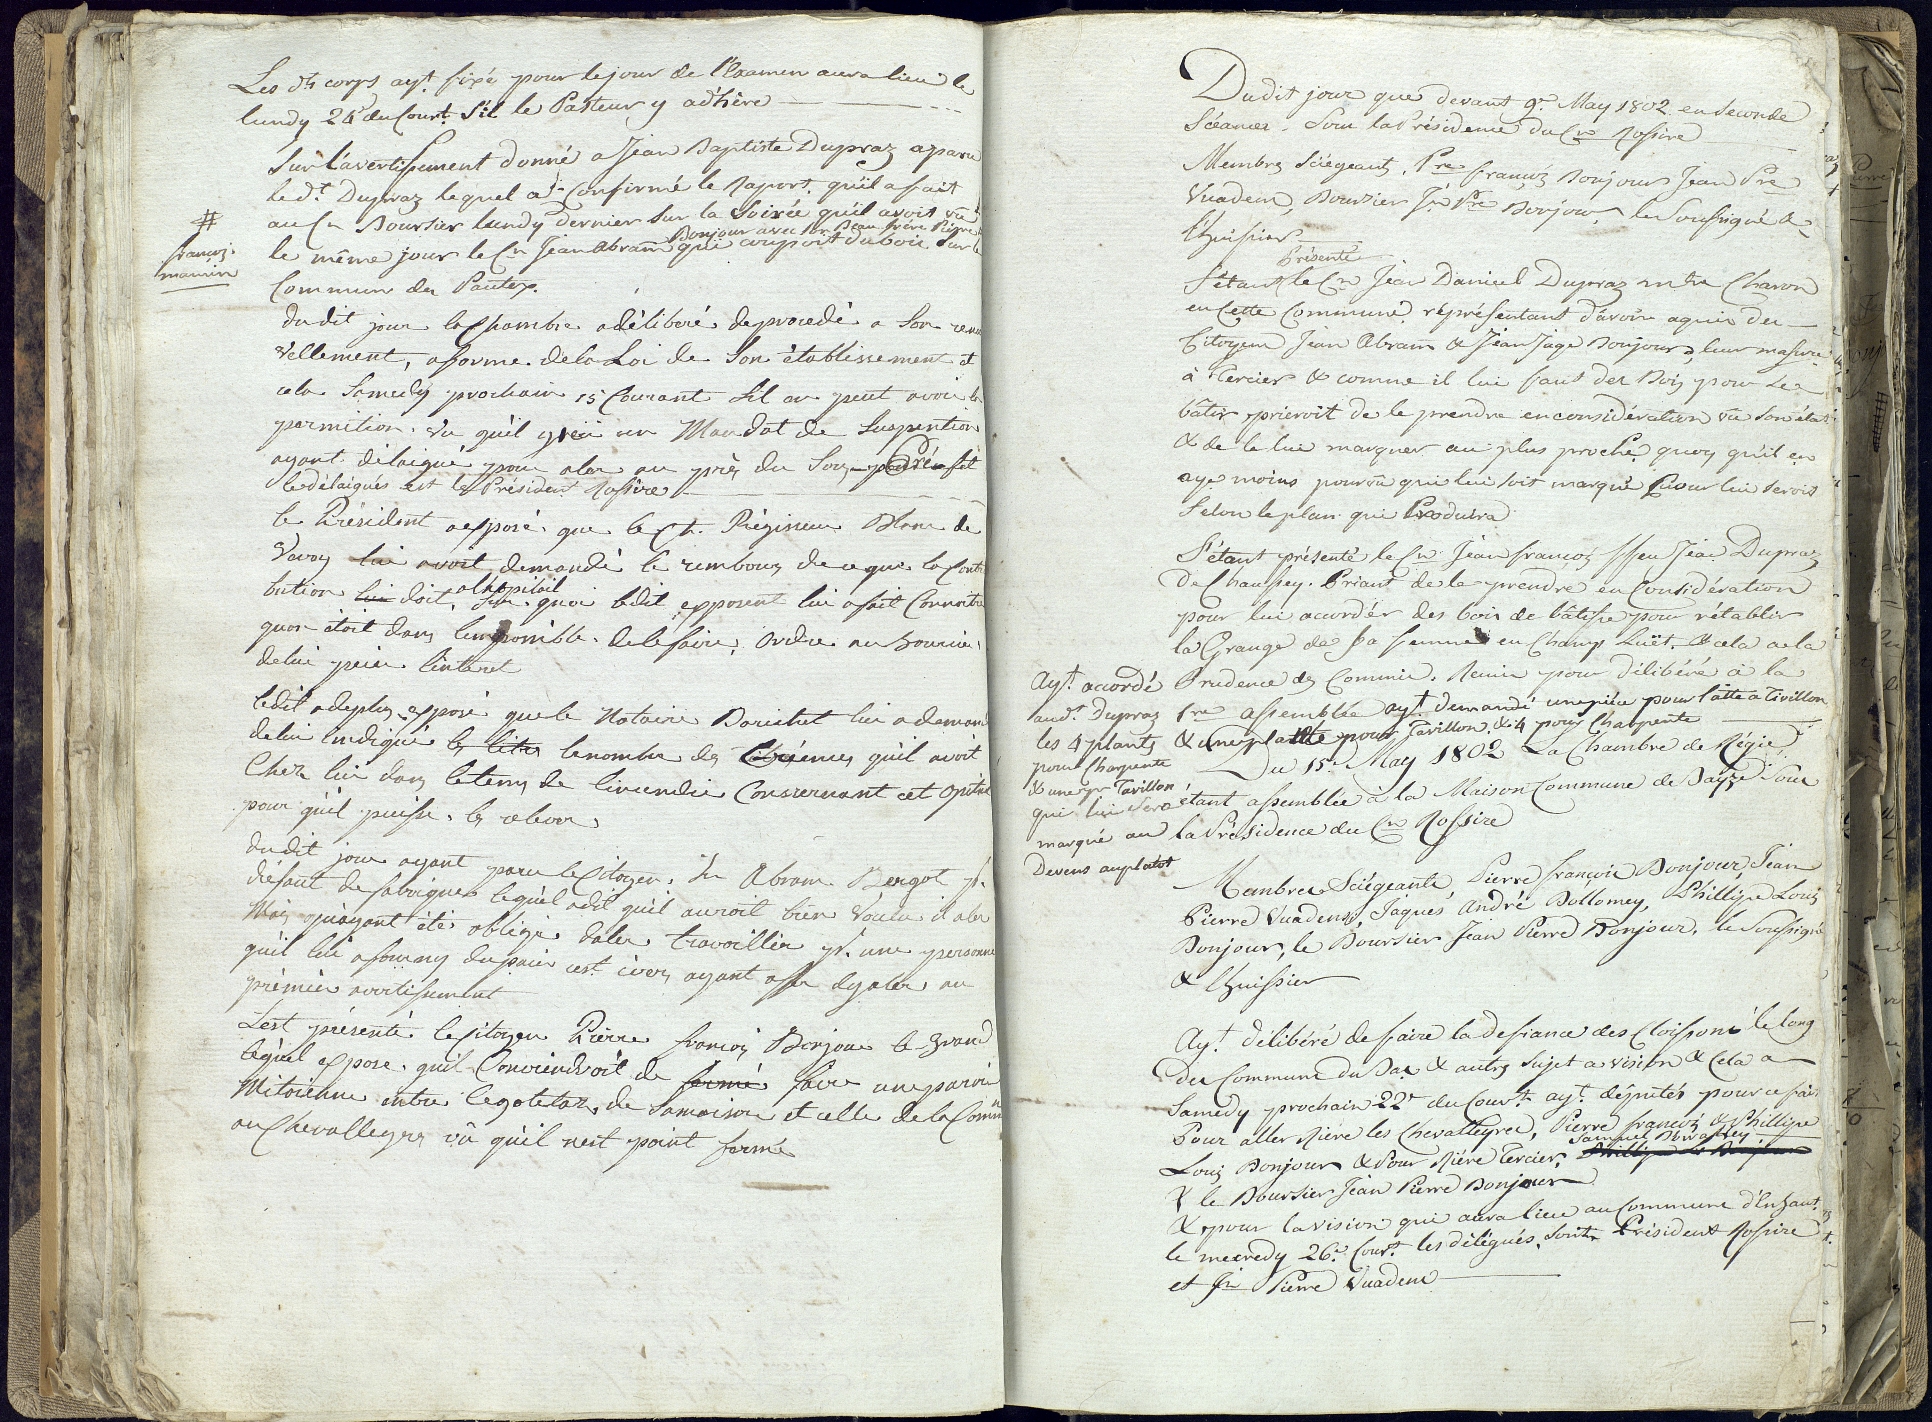 Les dts corps ayt fixé pour le jour de l'Examen aura lieu le
lundy 24e du Court S'il le Pasteur y adhère
Sur l'avertissement donné a Jean Baptiste Dupraz a paru
le dt Dupraz lequel a Confirmé le Raport qu'il a fait
au Cn Boursier lundy dernier Sur la Soirée qu'il avoit vu
#
francois
mamin
Bonjour avec son Beau frère Pierre
le même jour le Cn Jean Abram qui emportt du bois Sur le
Commun des Pautex.
du dit jour la Chambre a délibéré de procedé a Son renou
vellement, a forme de la Loi de Son établissement et
cela Samedy prochain 15 Courant S'il on peut avoir la
permition vu qu'il y a eü un Mandat de Suspention
ayant délaigué pour aler au près du Sous Préfet
le délaigués est le Président Rossire
le Président a exposé que le Cn Régisseur Blanc de
Vevey lui avoit demandé le rembours de ce que la Contri
a l'hopitail
bution lui doit, Sur quoi ledit exposent lui a fait Connoitre
quon étoit dans l'impossible de le faire, ordre au Boursier
de lui peier l'interet
ledit a de plus exposé que le Notaire Dorichet lui a demand
de lui indiqué les titre le nombre des Créences qu'il avoit
Chez lui dans le tems de l'incendie Conservant cet opital
pour qu'il puisse les relever
du dit jour ayant paru le Citoyen Jn Abram Bergot pr
défaut de fabriquer lequel a dit qu'il auroit bien voulu il aler
Mais qu'ayant été obligé d'aler travoillier pr une personne
qu'il lui a fourny du pain cet iver ayant offer dy aler au
prémier avertissement
S'est présenté le Citoyen Pierre francois Bonjour le Grand
lequel expose qu'il Conviendroit de fermé faire une paroi
Mitoienne entre le galetaz de Sa maison et celle de la Comm
au Chevalleyres vû qu'il n'est point fermé
Dudit jour que devant 9e May 1802 en Seconde
Séances Sous la Présidence du Cn Rossire
Membres Sciégeants, Pre françois Bonjour Jean Pre
Vuadens, Boursier Jn Pre Bonjour, le Soussigné &
l'huissier
Présenté
S'étant le Cn Jean Daniel Dupraz mtre Charon
en Cette Commune, représentant d'avoir aquis des
Citoyens Jean Abram & Jean Jaqe Bonjour, leur masure
à Tercier & comme il lui faut des Bois pour Les
bâtir, prieroit de le prendre en considération vu son état
& de le lui marquer au plus proche, quoy qu'il en
aye moins pourvu qui lui soit marqué pour lui servir
Selon le plan qui Produira
S'étant présenté le Cn Jean françois ffeu Jean Dupraz
De Chaussey. Priant de le prendre en Considération
pour lui accordér des bois de bâtisse pour rétablir
la Grange de Sa femme en Champ Luët. & cela a la
Prudence des Commis. Remis pour délibéré à la
1re assemblée ayt demandé une piéce pour l'atte a Tivillon
& une platte pour Tavillon & 4 pour Charpente
Ayt accordé
audt Dupraz
les 4 plants
pour Charpente
& une pr Tavillon
qui lui sera
marqué au
Devens au plalot
Du 15e May 1802 La Chambre de Régie
étant assemblée à la Maison Commune de Bayse Sous
la Présidence du Cn Rossire
Membres Sciégeants, Pierre françois Bonjour, Jean
Pierre Vuadens, Jaques André Dollomey, Phillipe Louis
Bonjour, le Boursier Jean Pierre Bonjour, le Soussigné
& l'huissier
Ayt délibéré de faire la defiance des Cloisons le long
des Communs du Bas & autres Sujet a vision & Cela a
Samedy prochain 22e du Court ayt députés pour ce faire
Pour aller Riére les Chevalleyres, Pierre françois & Phillipe
Samuel
Louis Bonjour & Pour Riére Tercier,
& le Boursier Jean Pierre Bonjour
& pour la vision qui aura lieu au Commune d'Enhaut
le mecredy 26e Court les délégués Sont Président Rossire
et Jn Pierre Vuadens